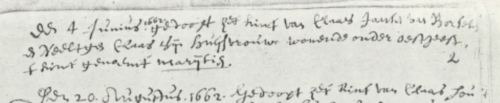 den 4 Junius 1662 gedoopt het kint van Claas Jansz van
Neeltge Claas sijn huijsvrouw wonende onder oestgeest,
t kint genaemt marijtie.
2
Den 20 Augustus. 1662. Gedoopt het kint van Claas Cou